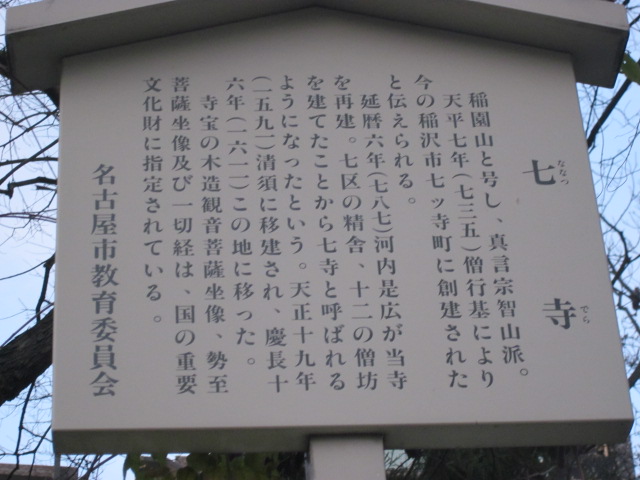 七寺
ななつでら
稲園山と号し、真言宗智山派。
天平七年(七三五)僧行基により
今の稲沢市七ッ寺町に創建された
と伝えられる。
延暦六年(七八七)河内是広が当寺
を再建。七区の精舎、十二の僧坊
を建てたことから七寺と呼ばれる
ようになったという。天正十九年
(一五九一)清須に移建され、慶長十
六年(一六一一)この地に移った。
寺宝の木造観音菩薩坐像、勢至
菩薩坐像及び一切経は、国の重要
文化財に指定されている。
名古屋市教育委員会